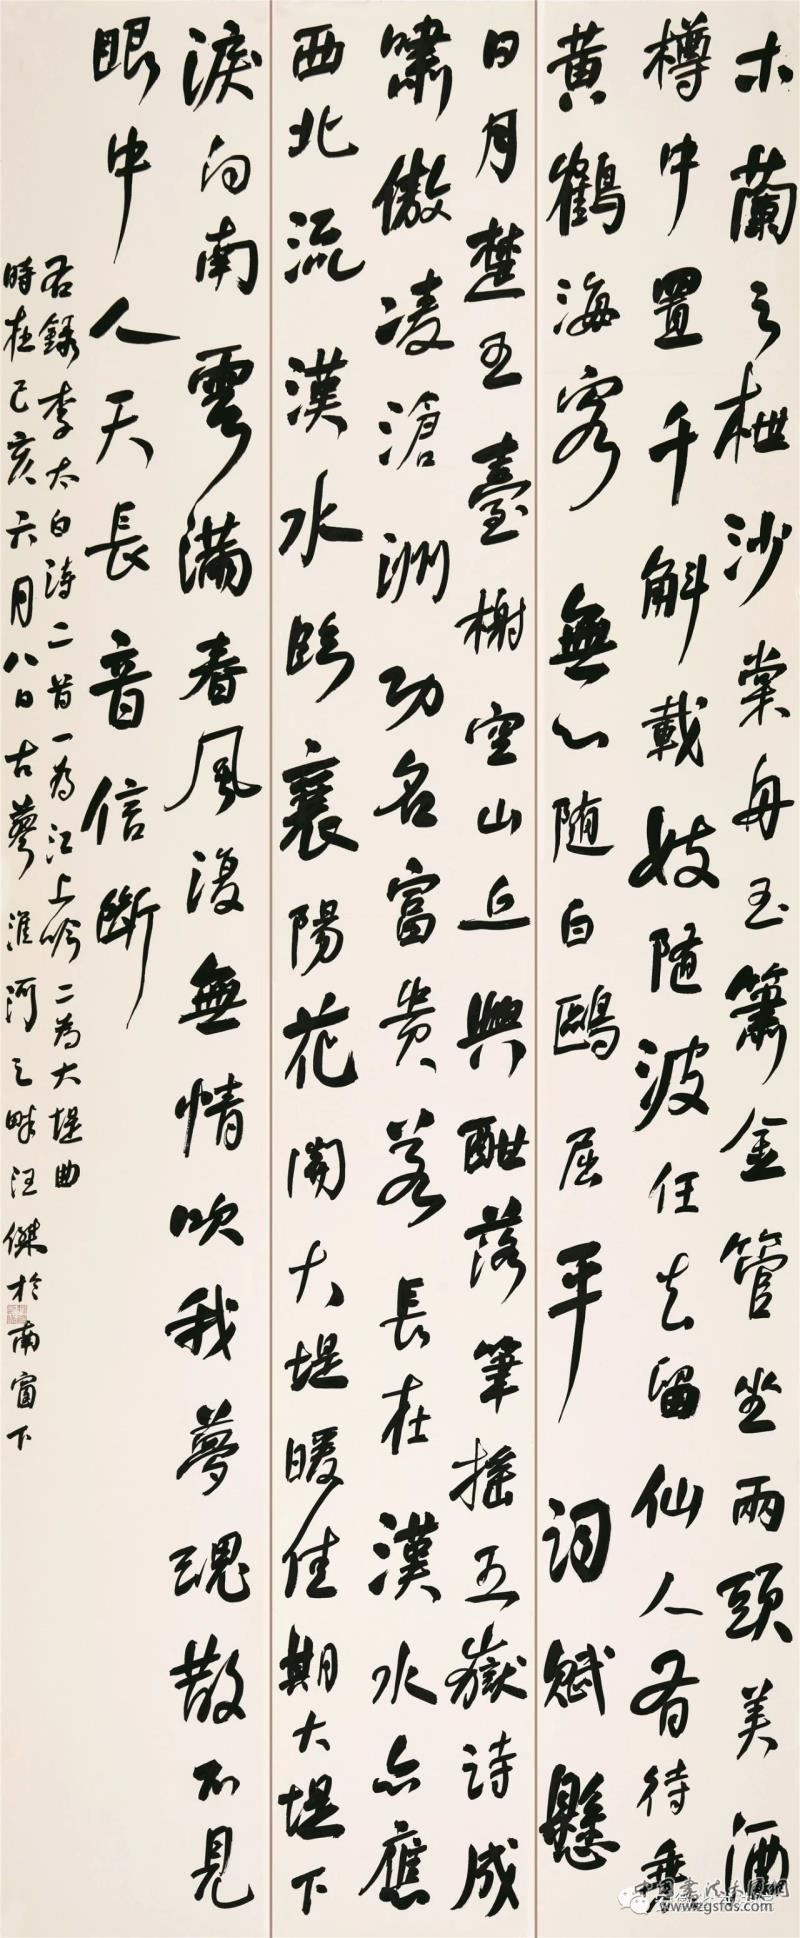 木蘭之枻沙棠舟玉簫金管坐兩頭美酒
樽中置千斛載妓隨波任去留仙人有待乘
黄鶴海客無心随白鷗屈平詞賦懸
日月楚王臺榭空山丘興酣落筆搖五嶽詩成
嘯傲凌滄洲功名富贵若長在漢水亦應
西北流漢水臨襄陽花開大堤暖佳期大堤下
淚向南雲滿春風復無情吹我夢魂散不見
眼中人天長音信斷
右錄李太白诗二首一為江上吟二為大堤曲
時在己亥六月八日古蓼淮河之畔汪傑於南窗下
www.zgsfds.com